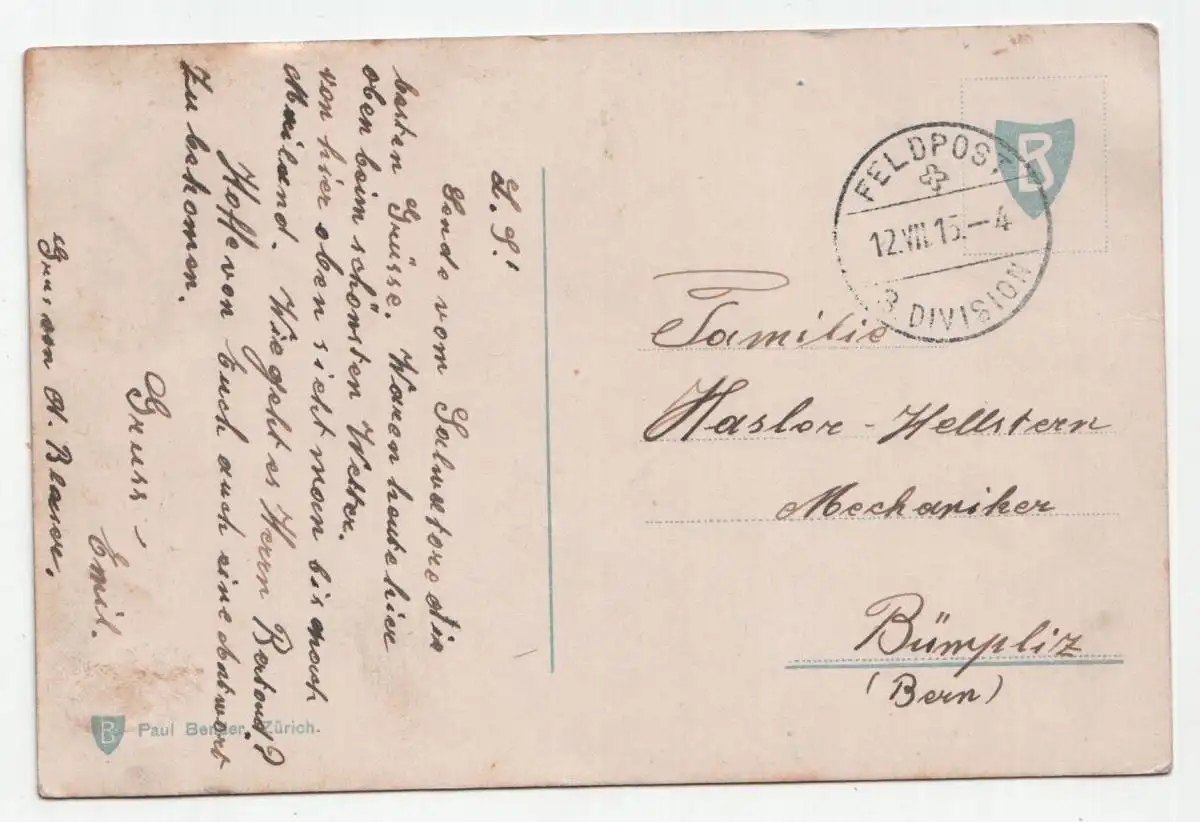 L. G.!
Sende vom Salvatore die
besten Grüsse. Waren heute hier
oben beim schönsten Wetter.
von hier oben sieht man bis nach
Mailand. Wie geht es Herrn
Hoffe von Euch auch eine Antwort
zu bekomen.
Gruss
Emil.
Gruss von A. Blaser.
B Paul Bender, Zürich.
B
FELDPOST
12.VII.15.-4
3. DIVISION
Familie
Hasler-Hellstern
Mechaniker
Bümpliz
(Bern)